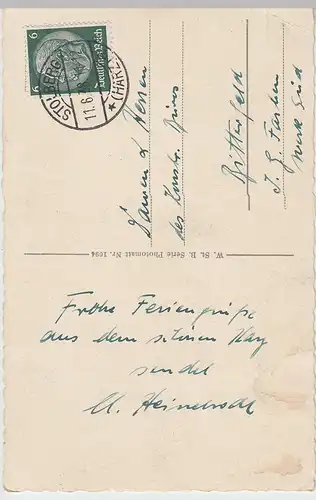 6
Deutsches Reich
STOLBERG
(HARZ)
11.6.
Damen u Herren
des Konstr. Büros
Bitterfeld
I. G. Farben
Werk Süd
W. St. B. Serie Photomatt Nr. 1694
Frohe Feriengrüße
aus dem schönen Harz
sendet